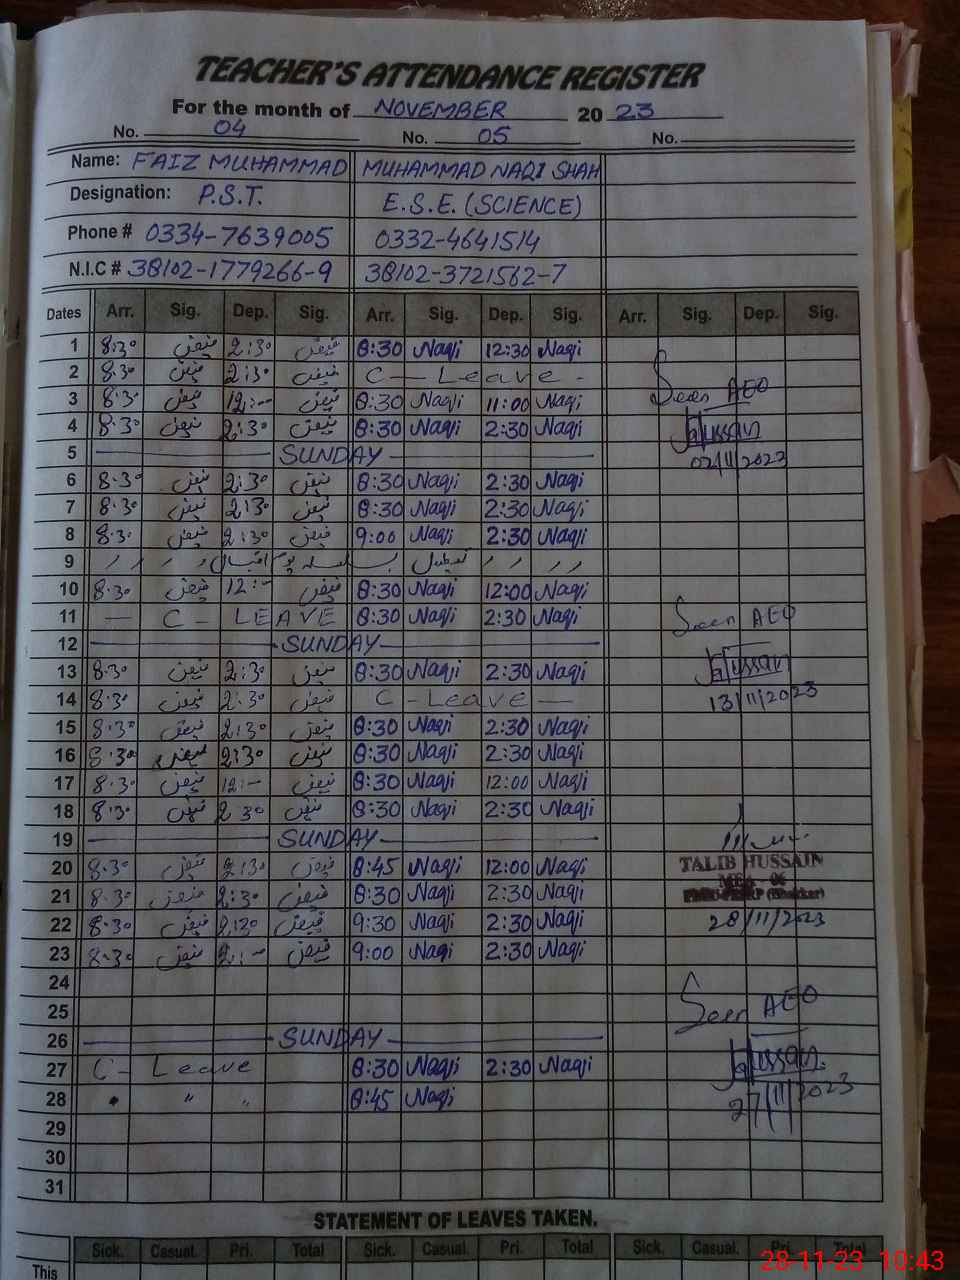 TEACHER'S ATTENDANCE REGISTER
For the month of NOVEMBER 20 23
No. 04 No. 05 No.
Name: FAIZ MUHAMMAD MUHAMMAD NAQI SHAH
Designation: P.S.T. E.S.E. (SCIENCE)
Phone # 0334-7639005 0332-4641514
N.I.C # 38102-1779266-9 38102-3721562-7
Dates Arr. Sig. Dep. Sig. Arr. Sig. Dep. Sig. Arr. Sig. Dep. Sig.
1 8:30 فیض 2:30 فیض 8:30 Naqi 12:30 Naqi
2 8:30 فیض 2:30 فیض C - Leave -
3 8:30 فیض 12:- فیض 8:30 Naqi 11:00 Naqi Seen AEO
4 8:30 فیض 2:30 فیض 8:30 Naqi 2:30 Naqi Hussain
5 SUNDAY 02/11/2023
6 8:30 فیض 2:30 فیض 8:30 Naqi 2:30 Naqi
7 8:30 فیض 2:30 فیض 8:30 Naqi 2:30 Naqi
8 8:30 فیض 2:30 فیض 9:00 Naqi 2:30 Naqi
9 تعطیل بسلسلہ یوم اقبال
10 8:30 فیض 12:- فیض 8:30 Naqi 12:00 Naqi
11 — C - LEAVE 8:30 Naqi 2:30 Naqi Seen AEO
12 SUNDAY
13 8:30 فیض 2:30 فیض 8:30 Naqi 2:30 Naqi Hussain
14 8:30 فیض 2:30 فیض C - Leave — 13/11/2023
15 8:30 فیض 2:30 فیض 8:30 Naqi 2:30 Naqi
16 8:30 فیض 2:30 فیض 8:30 Naqi 2:30 Naqi
17 8:30 فیض 12:- فیض 8:30 Naqi 12:00 Naqi
18 8:30 فیض 2:30 فیض 8:30 Naqi 2:30 Naqi
19 SUNDAY
20 8:30 فیض 2:30 فیض 8:45 Naqi 12:00 Naqi TALIB HUSSAIN
21 8:30 فیض 2:30 فیض 8:30 Naqi 2:30 Naqi MEA - 06
22 8:30 فیض 2:30 فیض 9:30 Naqi 2:30 Naqi 28/11/2023
23 8:30 فیض 2:- فیض 9:00 Naqi 2:30 Naqi
24
25 Seen AEO
26 SUNDAY
27 C - Leave 8:30 Naqi 2:30 Naqi Hussain
28 " " 8:45 Naqi 27/11/2023
29
30
31
STATEMENT OF LEAVES TAKEN.
Sick. Casual. Pri. Total Sick. Casual. Pri. Total Sick. Casual. Pri. Total
This
28-11-23 10:43